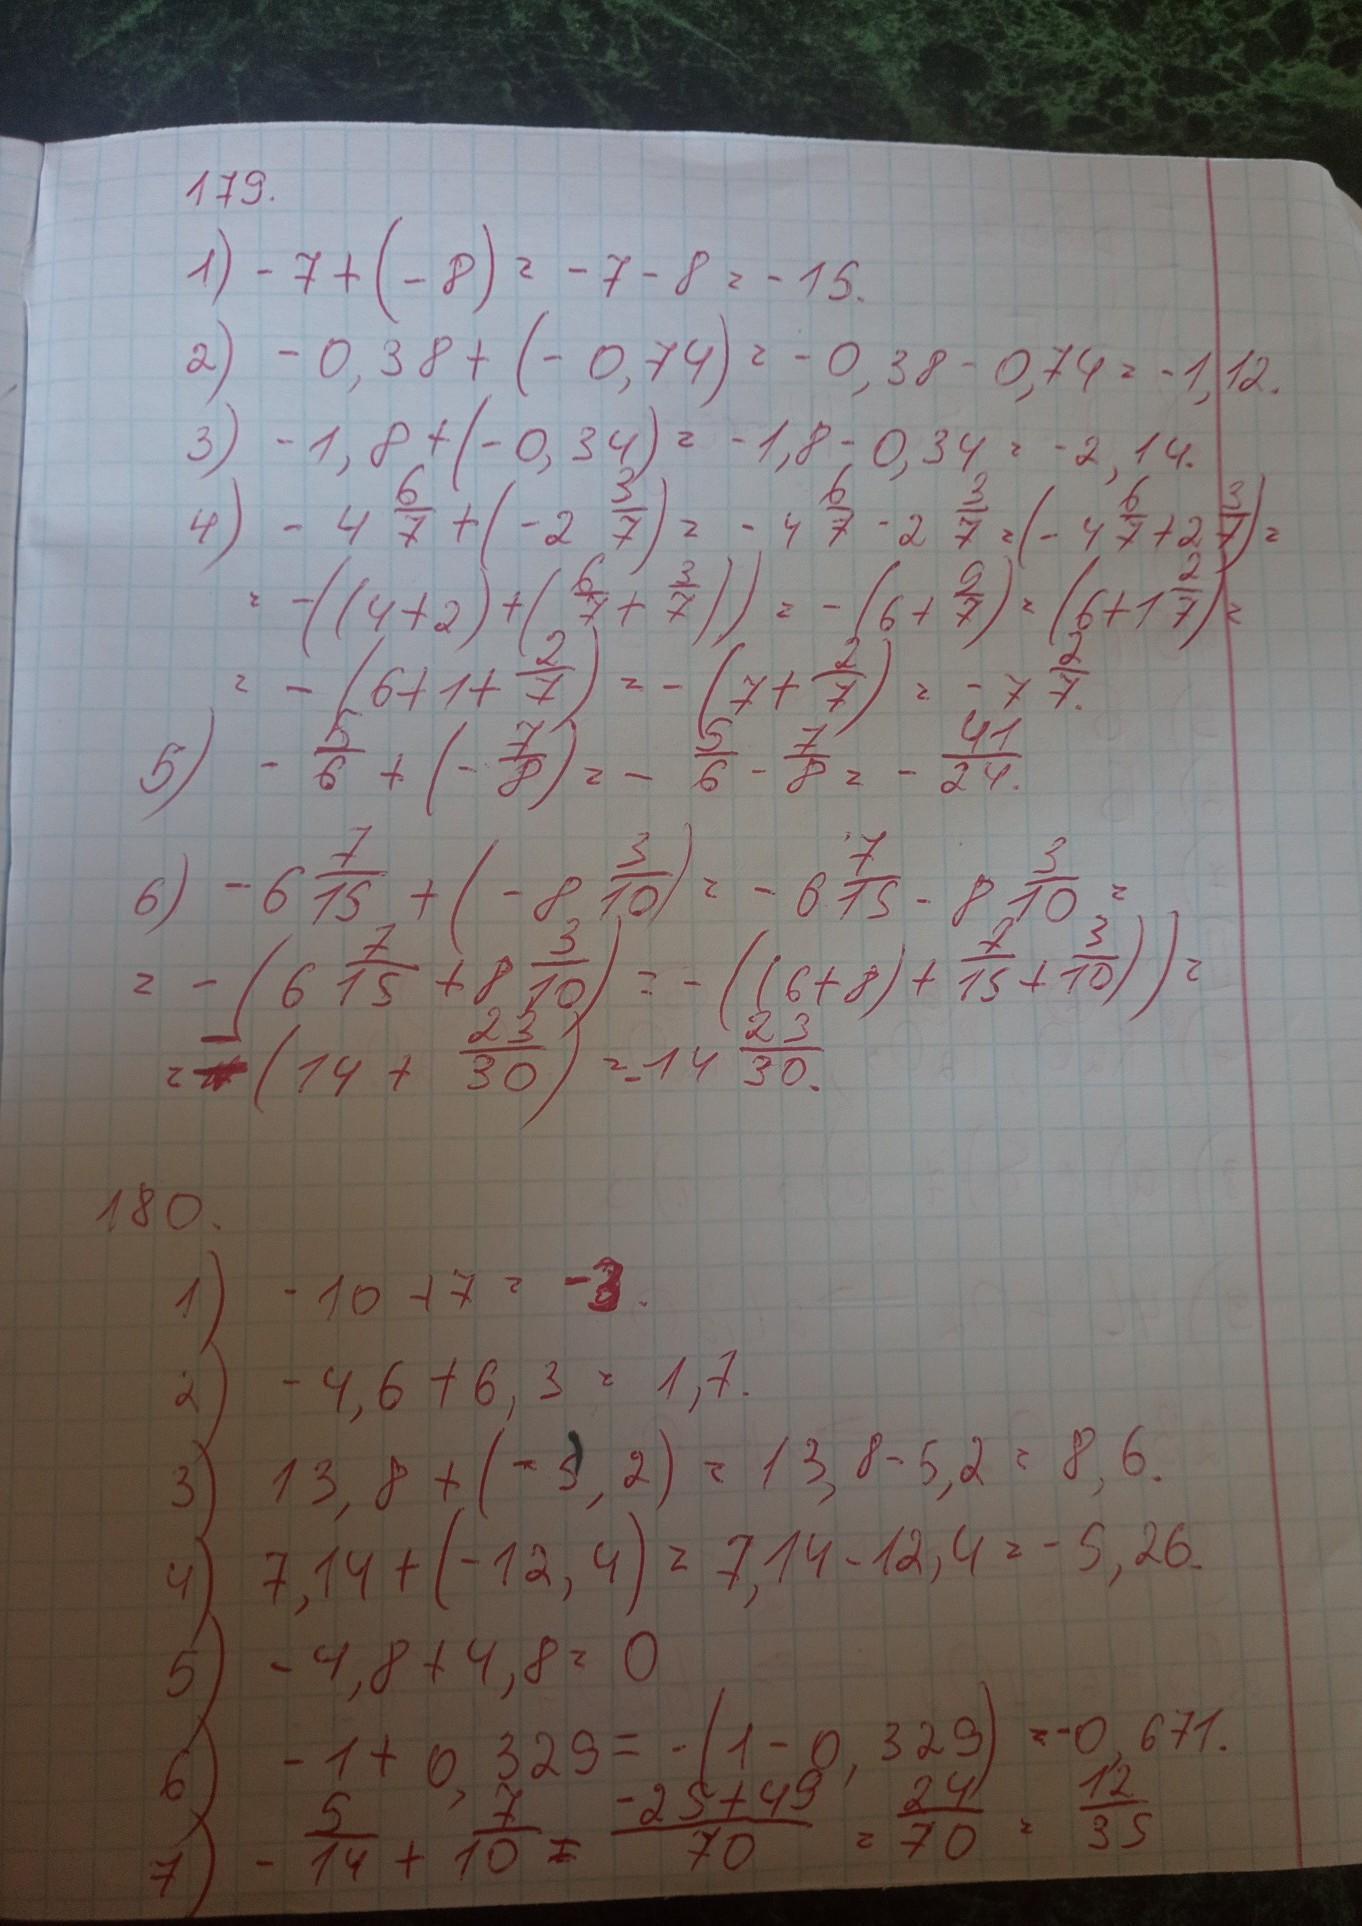 179.
1) -7+(-8) = -7-8 = -15.
2) -0,38+(-0,74) = -0,38-0,74 = -1,12.
3) -1,8+(-0,34) = -1,8-0,34 = -2,14.
4) -4 6/7 + (-2 3/7) = -4 6/7 - 2 3/7 = (-4 6/7 + 2 3/7) =
= -((4+2)+(6/7 + 3/7)) = -(6+ 9/7) = (6+1 2/7) =
= -(6+1+ 2/7) = -(7+ 2/7) = -7 2/7.
5) - 5/6 + (- 7/8) = - 5/6 - 7/8 = - 41/24.
6) -6 7/15 + (-8 3/10) = -6 7/15 - 8 3/10 =
= -(6 7/15 + 8 3/10) = -((6+8)+ 7/15 + 3/10)) =
= -(14 + 23/30) = -14 23/30.
180.
1) -10+7 = -3.
2) -4,6+6,3 = 1,7.
3) 13,8+(-5,2) = 13,8-5,2 = 8,6.
4) 7,14+(-12,4) = 7,14-12,4 = -5,26.
5) -4,8+4,8 = 0
6) -1+0,329 = -(1-0,329) = -0,671.
7) - 5/14 + 7/10 = -25+49/70 = 24/70 = 12/35